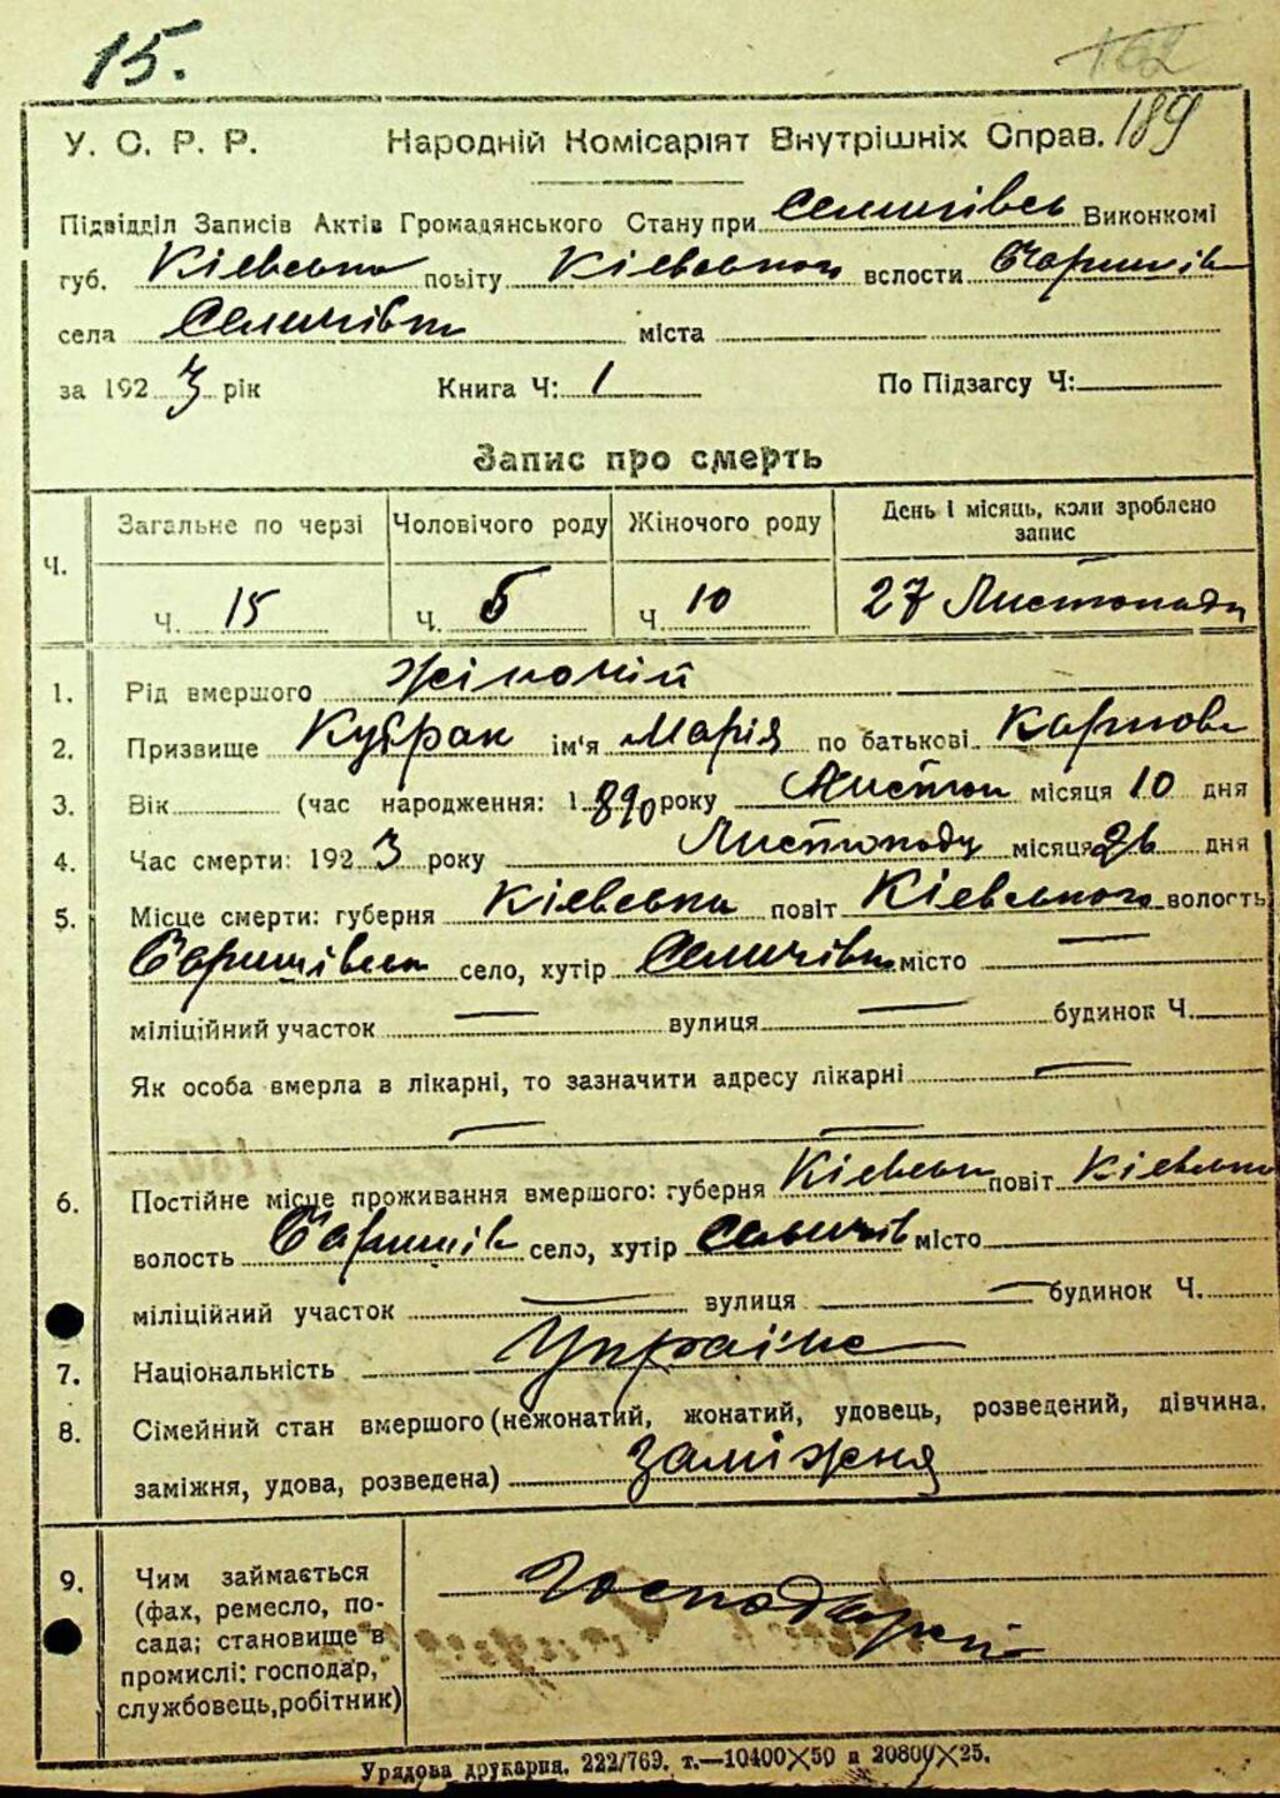 15.
162
189
У. С. Р. Р. Народній Комісаріят Внутрішніх Справ.
Підвідділ Записів Актів Громадянського Стану при Селичівсь Виконкомі
губ. Кіевська повіту Кіевського вслости Баришів
села Селичівки міста
за 1923 рік Книга Ч: 1 По Підзагсу Ч:
Запис про смерть
Ч. Загальне по черзі Чоловічого роду Жіночого роду День і місяць, коли зроблено запис
Ч. 15 Ч. 5 Ч. 10 27 Листопада
1. Рід вмершого жіночий
2. Призвище Кубрак ім'я Марія по батькові Карпова
3. Вік (час народження: 1890 року Листоп місяця 10 дня
4. Час смерти: 1923 року Листопаду місяця 26 дня
5. Місце смерти: губерня Кіевська повіт Кіевського волость
Баришівська село, хутір Селичівка місто —
міліційний участок — вулиця — будинок Ч.
Як особа вмерла в лікарні, то зазначити адресу лікарні —
— —
6. Постійне місце проживання вмершого: губерня Кіевськ повіт Кіевсько
волость Баришів село, хутір Селичів місто
міліційний участок — вулиця — будинок Ч.
7. Національність Украінс
8. Сімейний стан вмершого (нежонатий, жонатий, удовець, розведений, дівчина.
заміжня, удова, розведена) Заміжня
9. Чим займається
(фах, ремесло, по-
сада; становище в
промислі: господар,
службовець, робітник)
Господарка
Урядова друкарня. 222/769. т.—10400×50 и 20800×25.